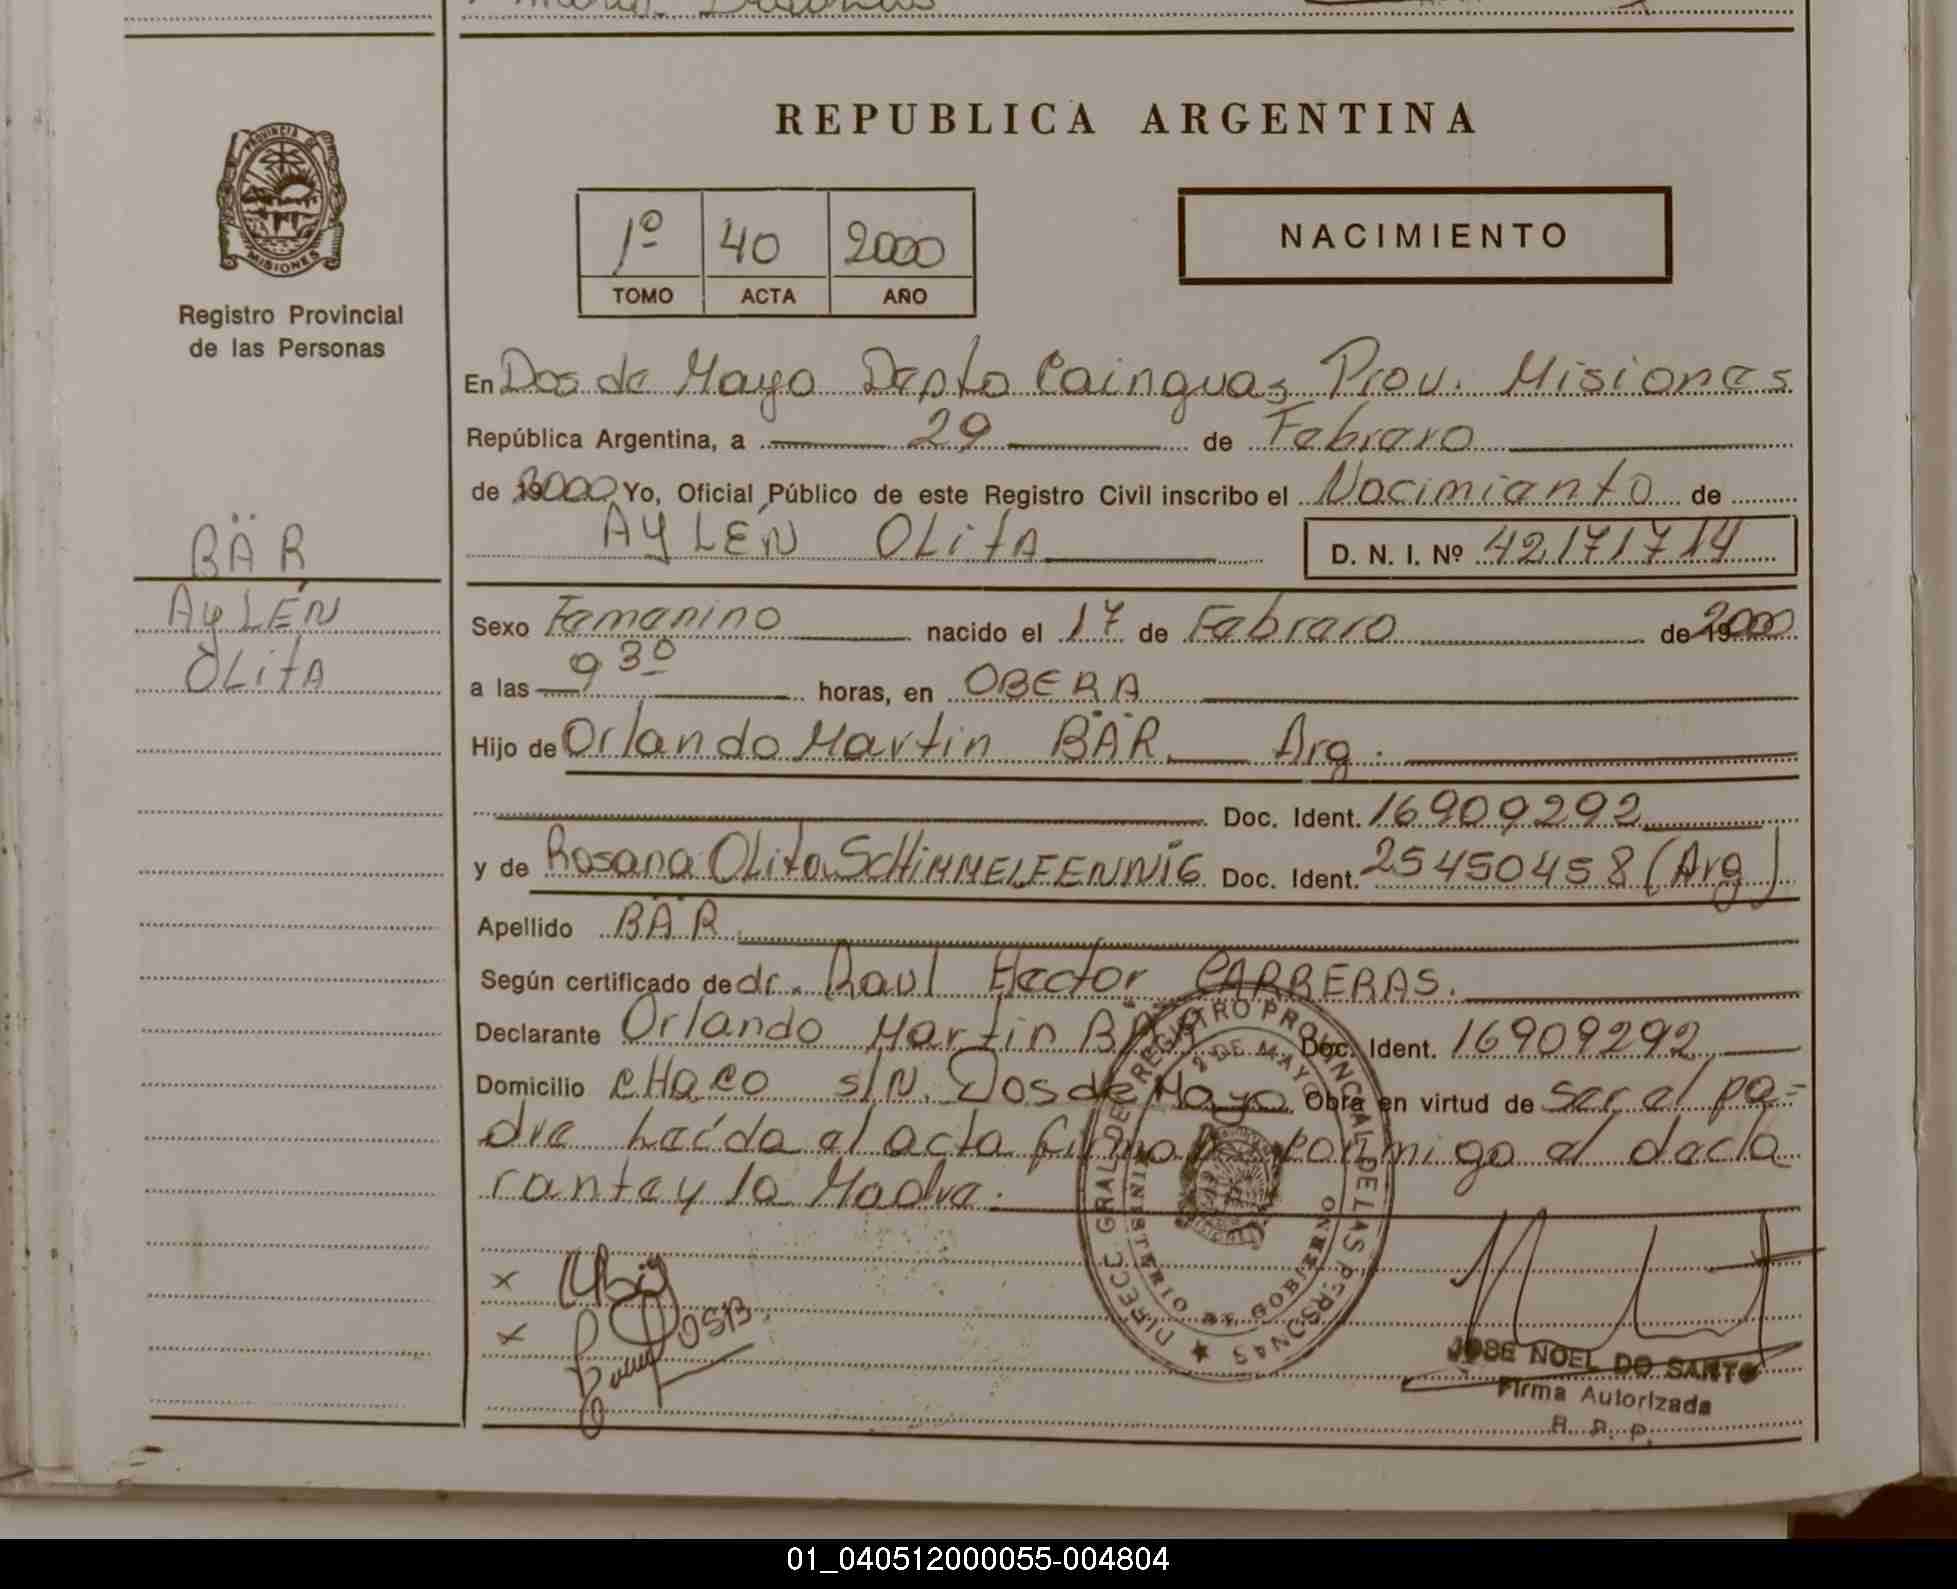 PROVINCIA DE
MISIONES
Registro Provincial
de las Personas
BÄR
AyLÉN
OLitA
REPUBLICA ARGENTINA
1º 40 2000
TOMO ACTA AÑO
NACIMIENTO
En Dos de Mayo Depto Cainguas Prov. Misiones
República Argentina, a 29 de Febrero
de 2000 Yo, Oficial Público de este Registro Civil inscribo el Nacimiento de
AYLÉN OLitA D. N. I. Nº 42171714
Sexo Femenino nacido el 17 de Febrero de 2000
a las 9 30 horas, en OBERA
Hijo de Orlando Martin BÄR Arg.
Doc. Ident. 16909292
y de Rosana OLita SCHiMMELFENNiG Doc. Ident. 25450458 (Arg)
Apellido BÄR
Según certificado de dr. Raul Hector CARRERAS.
Declarante Orlando Martin BÄR Doc. Ident. 16909292
Domicilio CHaco s/N. Dos de Mayo Obra en virtud de ser el pa=
dre Leída el acta firman conmigo el decla
rante y la Madre.
DIRECC GRAL DE REGISTRO PROVINCIAL DE LAS PERSONAS
2 DE MAYO
MINISTERIO DE GOBIERNO
x
x
JOSE NOEL DO SANTO
Firma Autorizada
R. P. P.
01_040512000055-004804